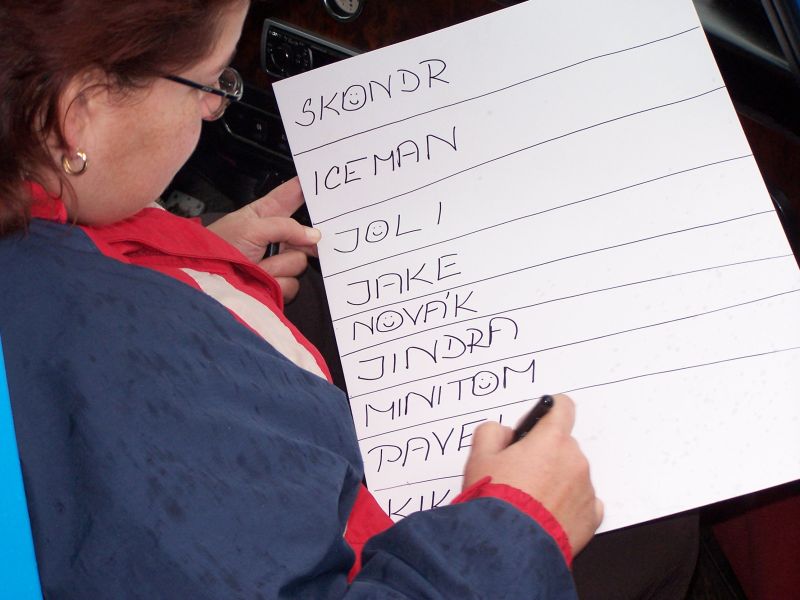 SKONDR
ICEMAN
JOLI
JAKE
NOVÁK
JINDRA
MINITOM
PAVEL